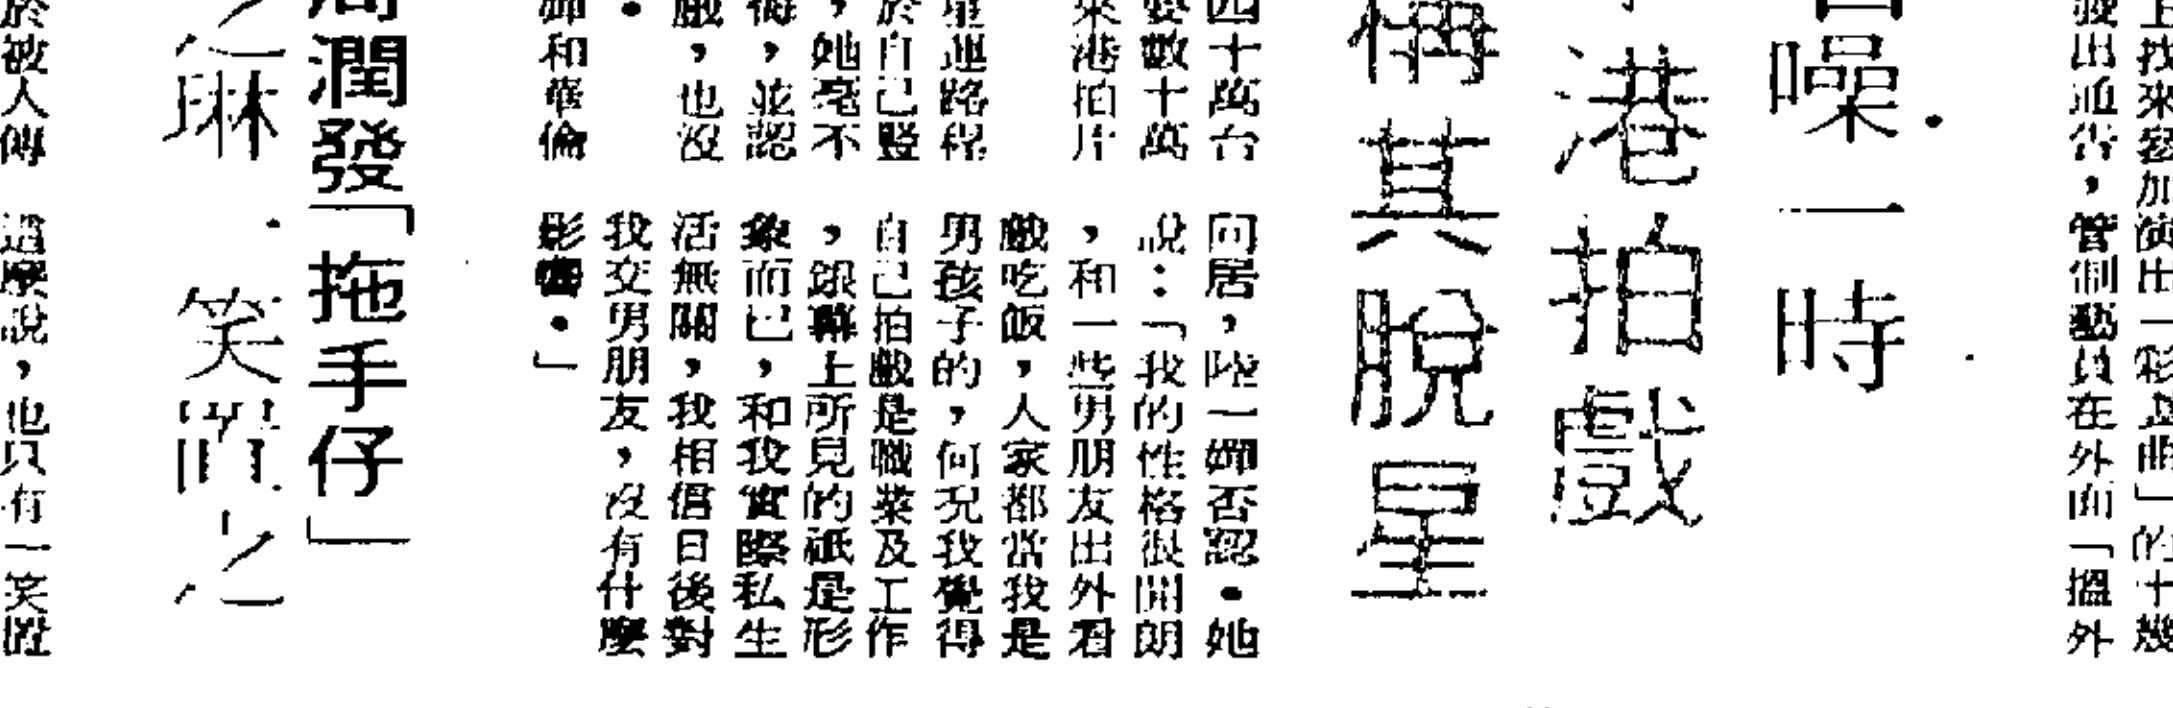 上找來參加演出一彩並曲」的十幾
出通告，管制藝員在外面「搵外
噪一時
港拍戲
稱其脫星
四十萬台
要數十萬
來港拍片
星運路程
於自己豎
，她毫不
，並認
戲，也沒
和華倫
同居，陸一嬋否認。她
說：「我的性格很開朗
，和一些男朋友出外看
戲吃飯，人家都當我是
男孩子的，何況我覺得
自己拍戲是職業及工作
，銀幕上所見的祇是形
象而已，和我實際私生
活無關，我相信日後對
我交男朋友，沒有什麼
影響。」
周潤發「拖手仔」
琳．笑置之
於被人傳
這麼說，也只有一笑置